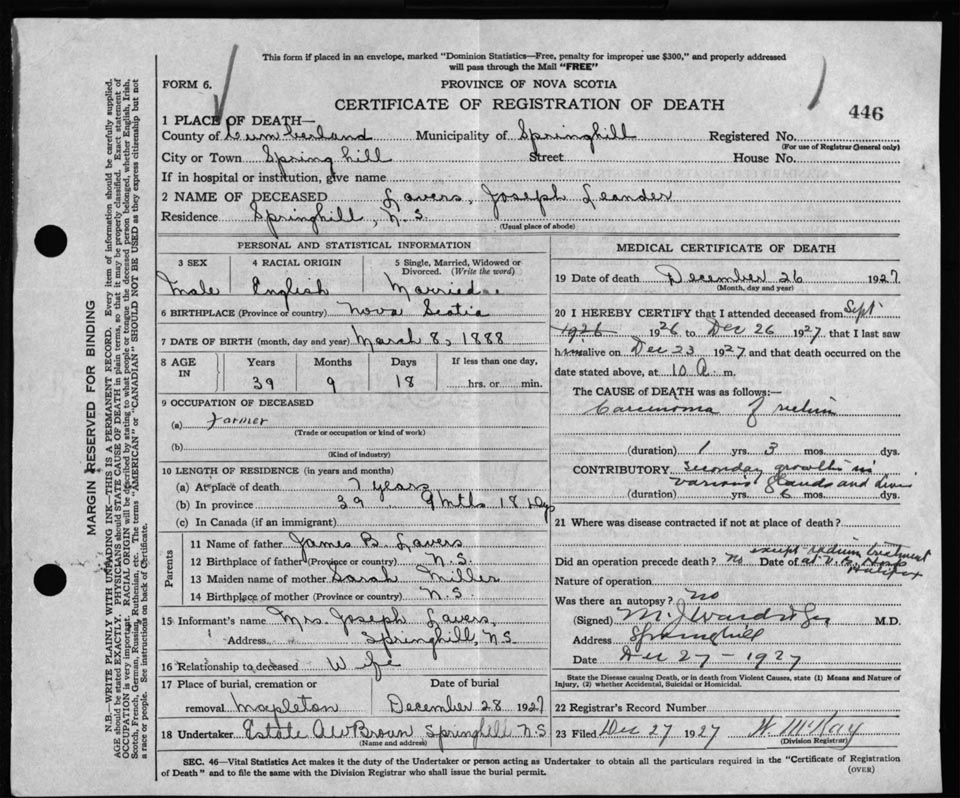 This form if placed in an envelope, marked "Dominion Statistics—Free, penalty for improper use $300," and properly addressed
will pass through the Mail "FREE"
FORM 6.
PROVINCE OF NOVA SCOTIA
CERTIFICATE OF REGISTRATION OF DEATH
446
1 PLACE OF DEATH—
County of Cumberland Municipality of Springhill Registered No.
(For use of Registrar General only)
City or Town Springhill Street House No.
If in hospital or institution, give name
2 NAME OF DECEASED Lavers, Joseph Leander
Residence Springhill, N.S.
(Usual place of abode)
PERSONAL AND STATISTICAL INFORMATION
3 SEX 4 RACIAL ORIGIN 5 Single, Married, Widowed or
Divorced. (Write the word)
Male English Married
6 BIRTHPLACE (Province or country) Nova Scotia
7 DATE OF BIRTH (month, day and year) March 8, 1888
8 AGE Years Months Days If less than one day,
IN 39 9 18 hrs. or min.
9 OCCUPATION OF DECEASED
(a) Farmer
(Trade or occupation or kind of work)
(b)
(Kind of industry)
10 LENGTH OF RESIDENCE (in years and months)
(a) At place of death 7 years
(b) In province 39 9 Mths 18 Dys
(c) In Canada (if an immigrant)
Parents
11 Name of father James B. Lavers
12 Birthplace of father (Province or country) N.S.
13 Maiden name of mother Sarah Miller
14 Birthplace of mother (Province or country) N.S.
15 Informant's name Mrs. Joseph Lavers,
Address Springhill, N.S.
16 Relationship to deceased Wife
17 Place of burial, cremation or Date of burial
removal Mapleton December 28 1927
18 Undertaker Estate A W Brown Springhill N.S.
(Name and address)
MEDICAL CERTIFICATE OF DEATH
19 Date of death December 26 1927
(Month, day and year)
20 I HEREBY CERTIFY that I attended deceased from Sept
1926 1926 to Dec 26 1927 that I last saw
him alive on Dec 23 1927 and that death occurred on the
date stated above, at 10 a. m.
The CAUSE of DEATH was as follows:—
Carcinoma of rectum
(duration) 1 yrs. 3 mos. dys.
CONTRIBUTORY seconday growths in
various glands and
(duration) yrs. 6 mos. dys.
21 Where was disease contracted if not at place of death?
except radium treatment
Did an operation precede death? No Date of at V. G. Hosp
Halifax
Nature of operation
Was there an autopsy? no
(Signed) M. J. M.D.
Address Springhill
Date Dec 27 - 1927
State the Disease causing Death, or in death from Violent Causes, state (1) Means and Nature of
Injury, (2) whether Accidental, Suicidal or Homicidal.
22 Registrar's Record Number
23 Filed Dec 27 1927 W. McKay
(Division Registrar)
SEC. 46—Vital Statistics Act makes it the duty of the Undertaker or person acting as Undertaker to obtain all the particulars required in the "Certificate of Registration
of Death" and to file the same with the Division Registrar who shall issue the burial permit.
(OVER)
MARGIN RESERVED FOR BINDING
N.B.—WRITE PLAINLY WITH UNFADING INK—THIS IS A PERMANENT RECORD. Every item of information should be carefully supplied.
AGE should be stated EXACTLY. PHYSICIANS should STATE CAUSE OF DEATH in plain terms, so that it may be properly classified. Exact statement of
OCCUPATION is very important. RACIAL ORIGIN will be described by stating to what people or tongue the deceased person belonged, whether English, Irish,
Scotch, French, German, Russian, Ruthenian, etc. The terms "AMERICAN" or "CANADIAN" SHOULD NOT BE USED as they express citizenship but not
a race or people. See instructions on back of Certificate.